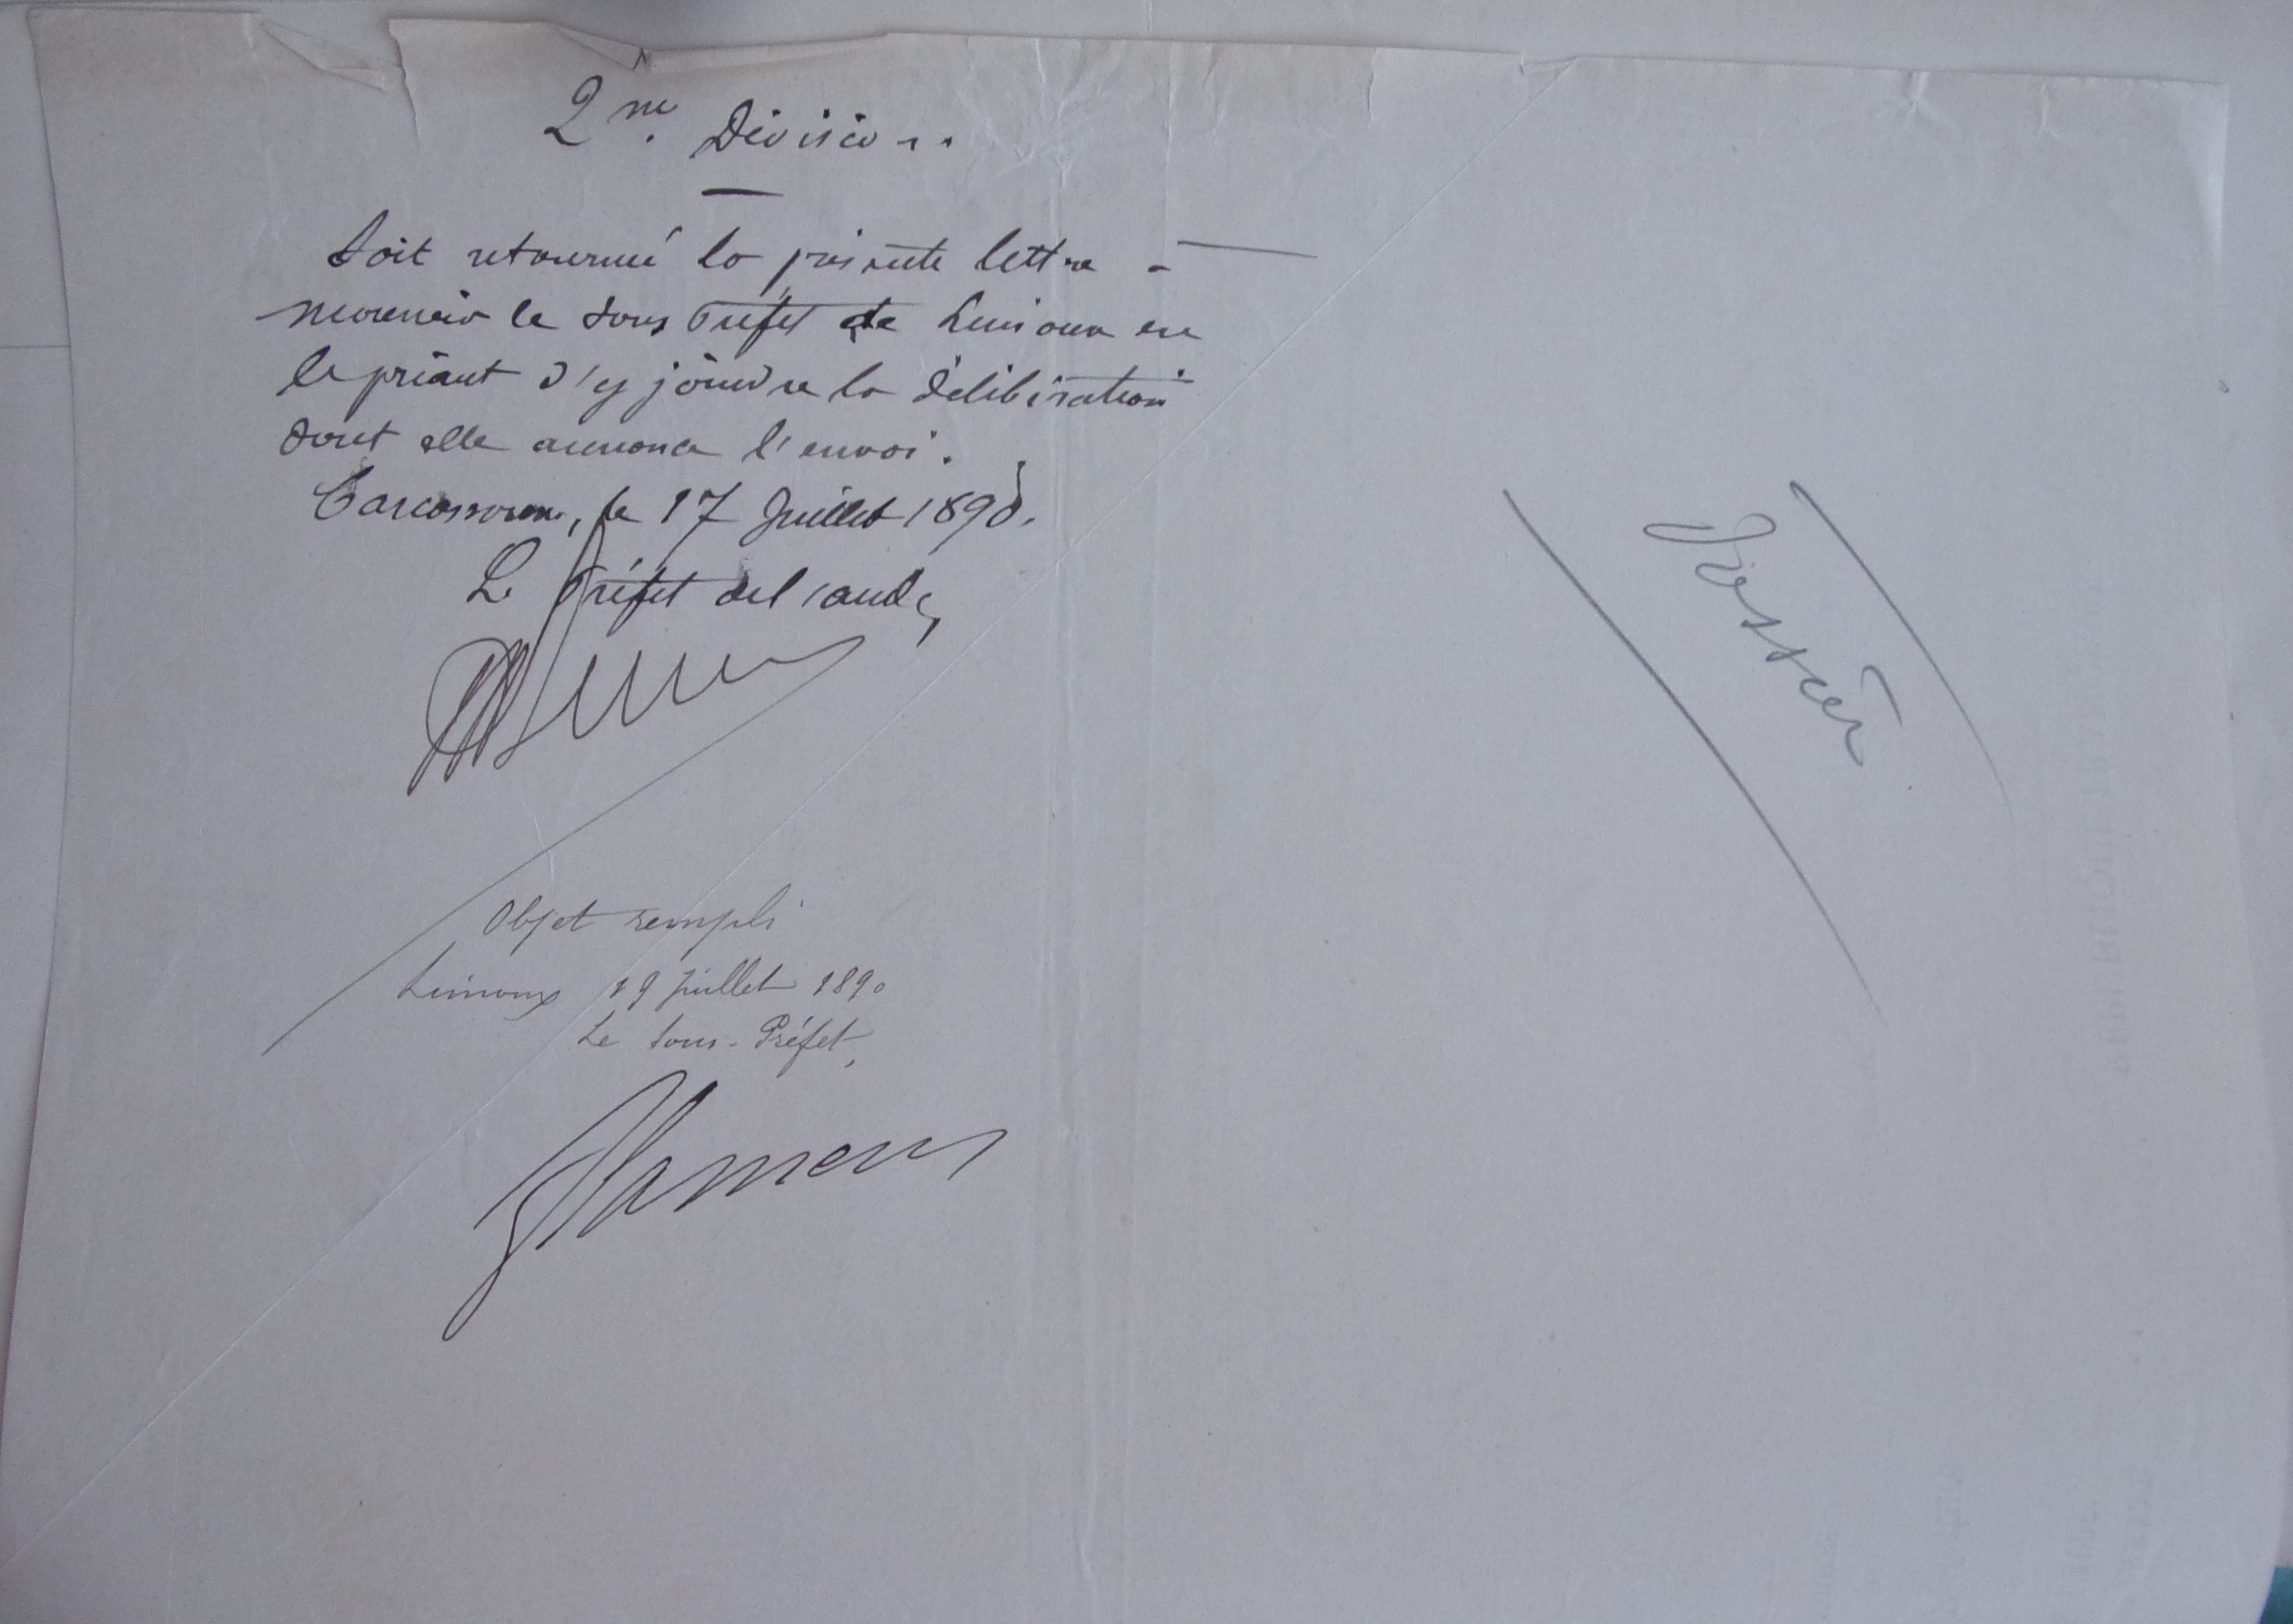 2me. Division.
Soit retourné la présente lettre à
monsieur le Sous Préfet de Limoux en
le priant d'y joindre la délibération
dont elle annonce l'envoi.
Carcassonne, le 17 Juillet 1890.
Le Préfet de l'aude,
Objet rempli
Limoux 19 Juillet 1890
Le Sous-Préfet,
Dossier